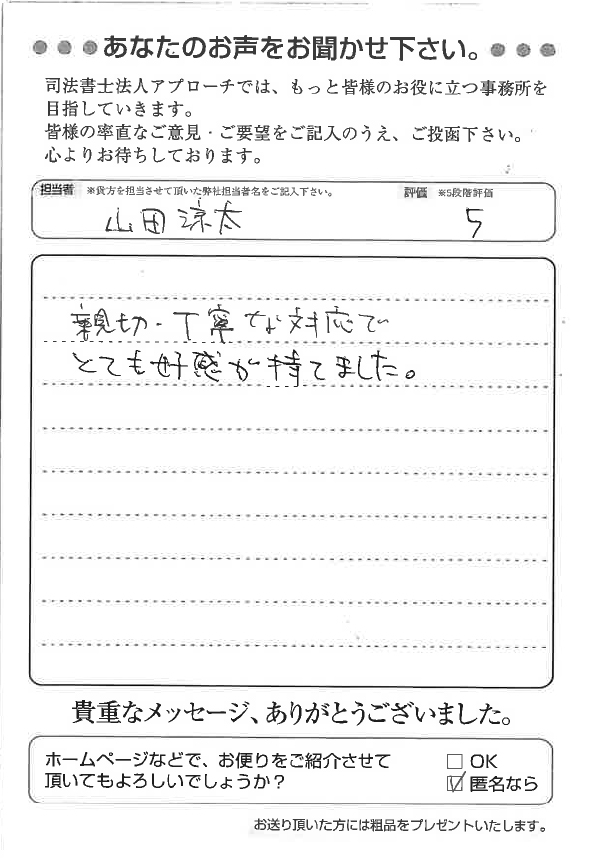 あなたのお声をお聞かせ下さい。
司法書士法人アプローチでは、もっと皆様のお役に立つ事務所を
目指していきます。
皆様の率直なご意見・ご要望をご記入のうえ、ご投函下さい。
心よりお待ちしております。
担当者 ※貴方を担当させて頂いた弊社担当者名をご記入下さい。 評価 ※5段階評価
山田涼太 5
親切・丁寧な対応で
とても好感が持てました。
貴重なメッセージ、ありがとうございました。
ホームページなどで、お便りをご紹介させて
頂いてもよろしいでしょうか?
□ OK
☑ 匿名なら
お送り頂いた方には粗品をプレゼントいたします。